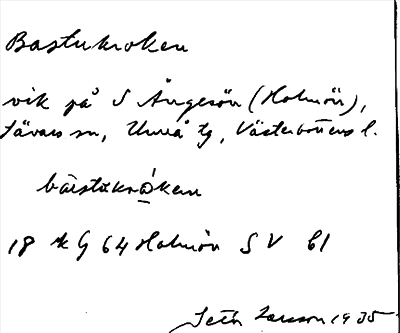 Bastukroken
vik på S Ängesön (Holmön),
Sävars sn, Umeå tg, Västerbottens l.
bastukråken
18 k G 64 Holmön S V 61
Seth Larsson 1935